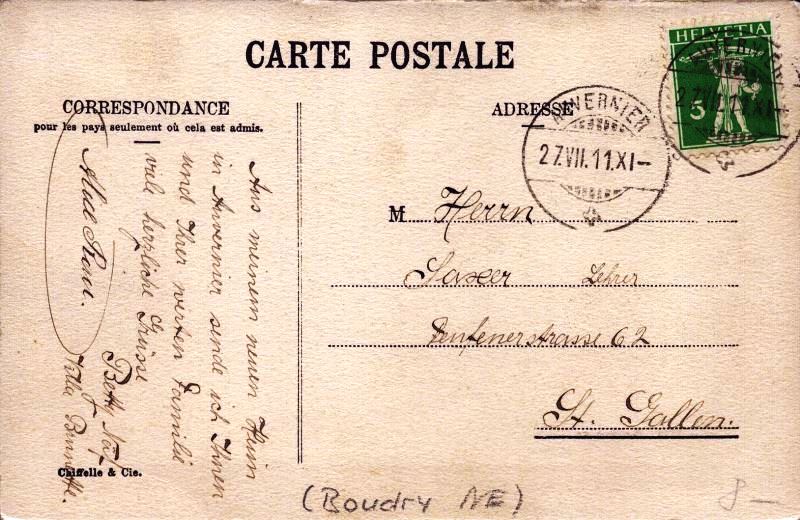 CARTE POSTALE
CORRESPONDANCE
pour les pays seulement où cela est admis.
ADRESSE
HELVETIA
5
AUVERNIER
27.VII.11.XI–
AUVERNIER
27.VII.11.XI–
Aus meinem neuen Heim
in Auvernier sende ich Ihnen
und Ihrer werten Familie
viele herzliche Grüsse
Betty Näf
Villa
Alice
M Herrn
Saxer Lehrer
Teufenerstrasse 62
St. Gallen.
Chiffelle & Cie.
(Boudry NE)
8–